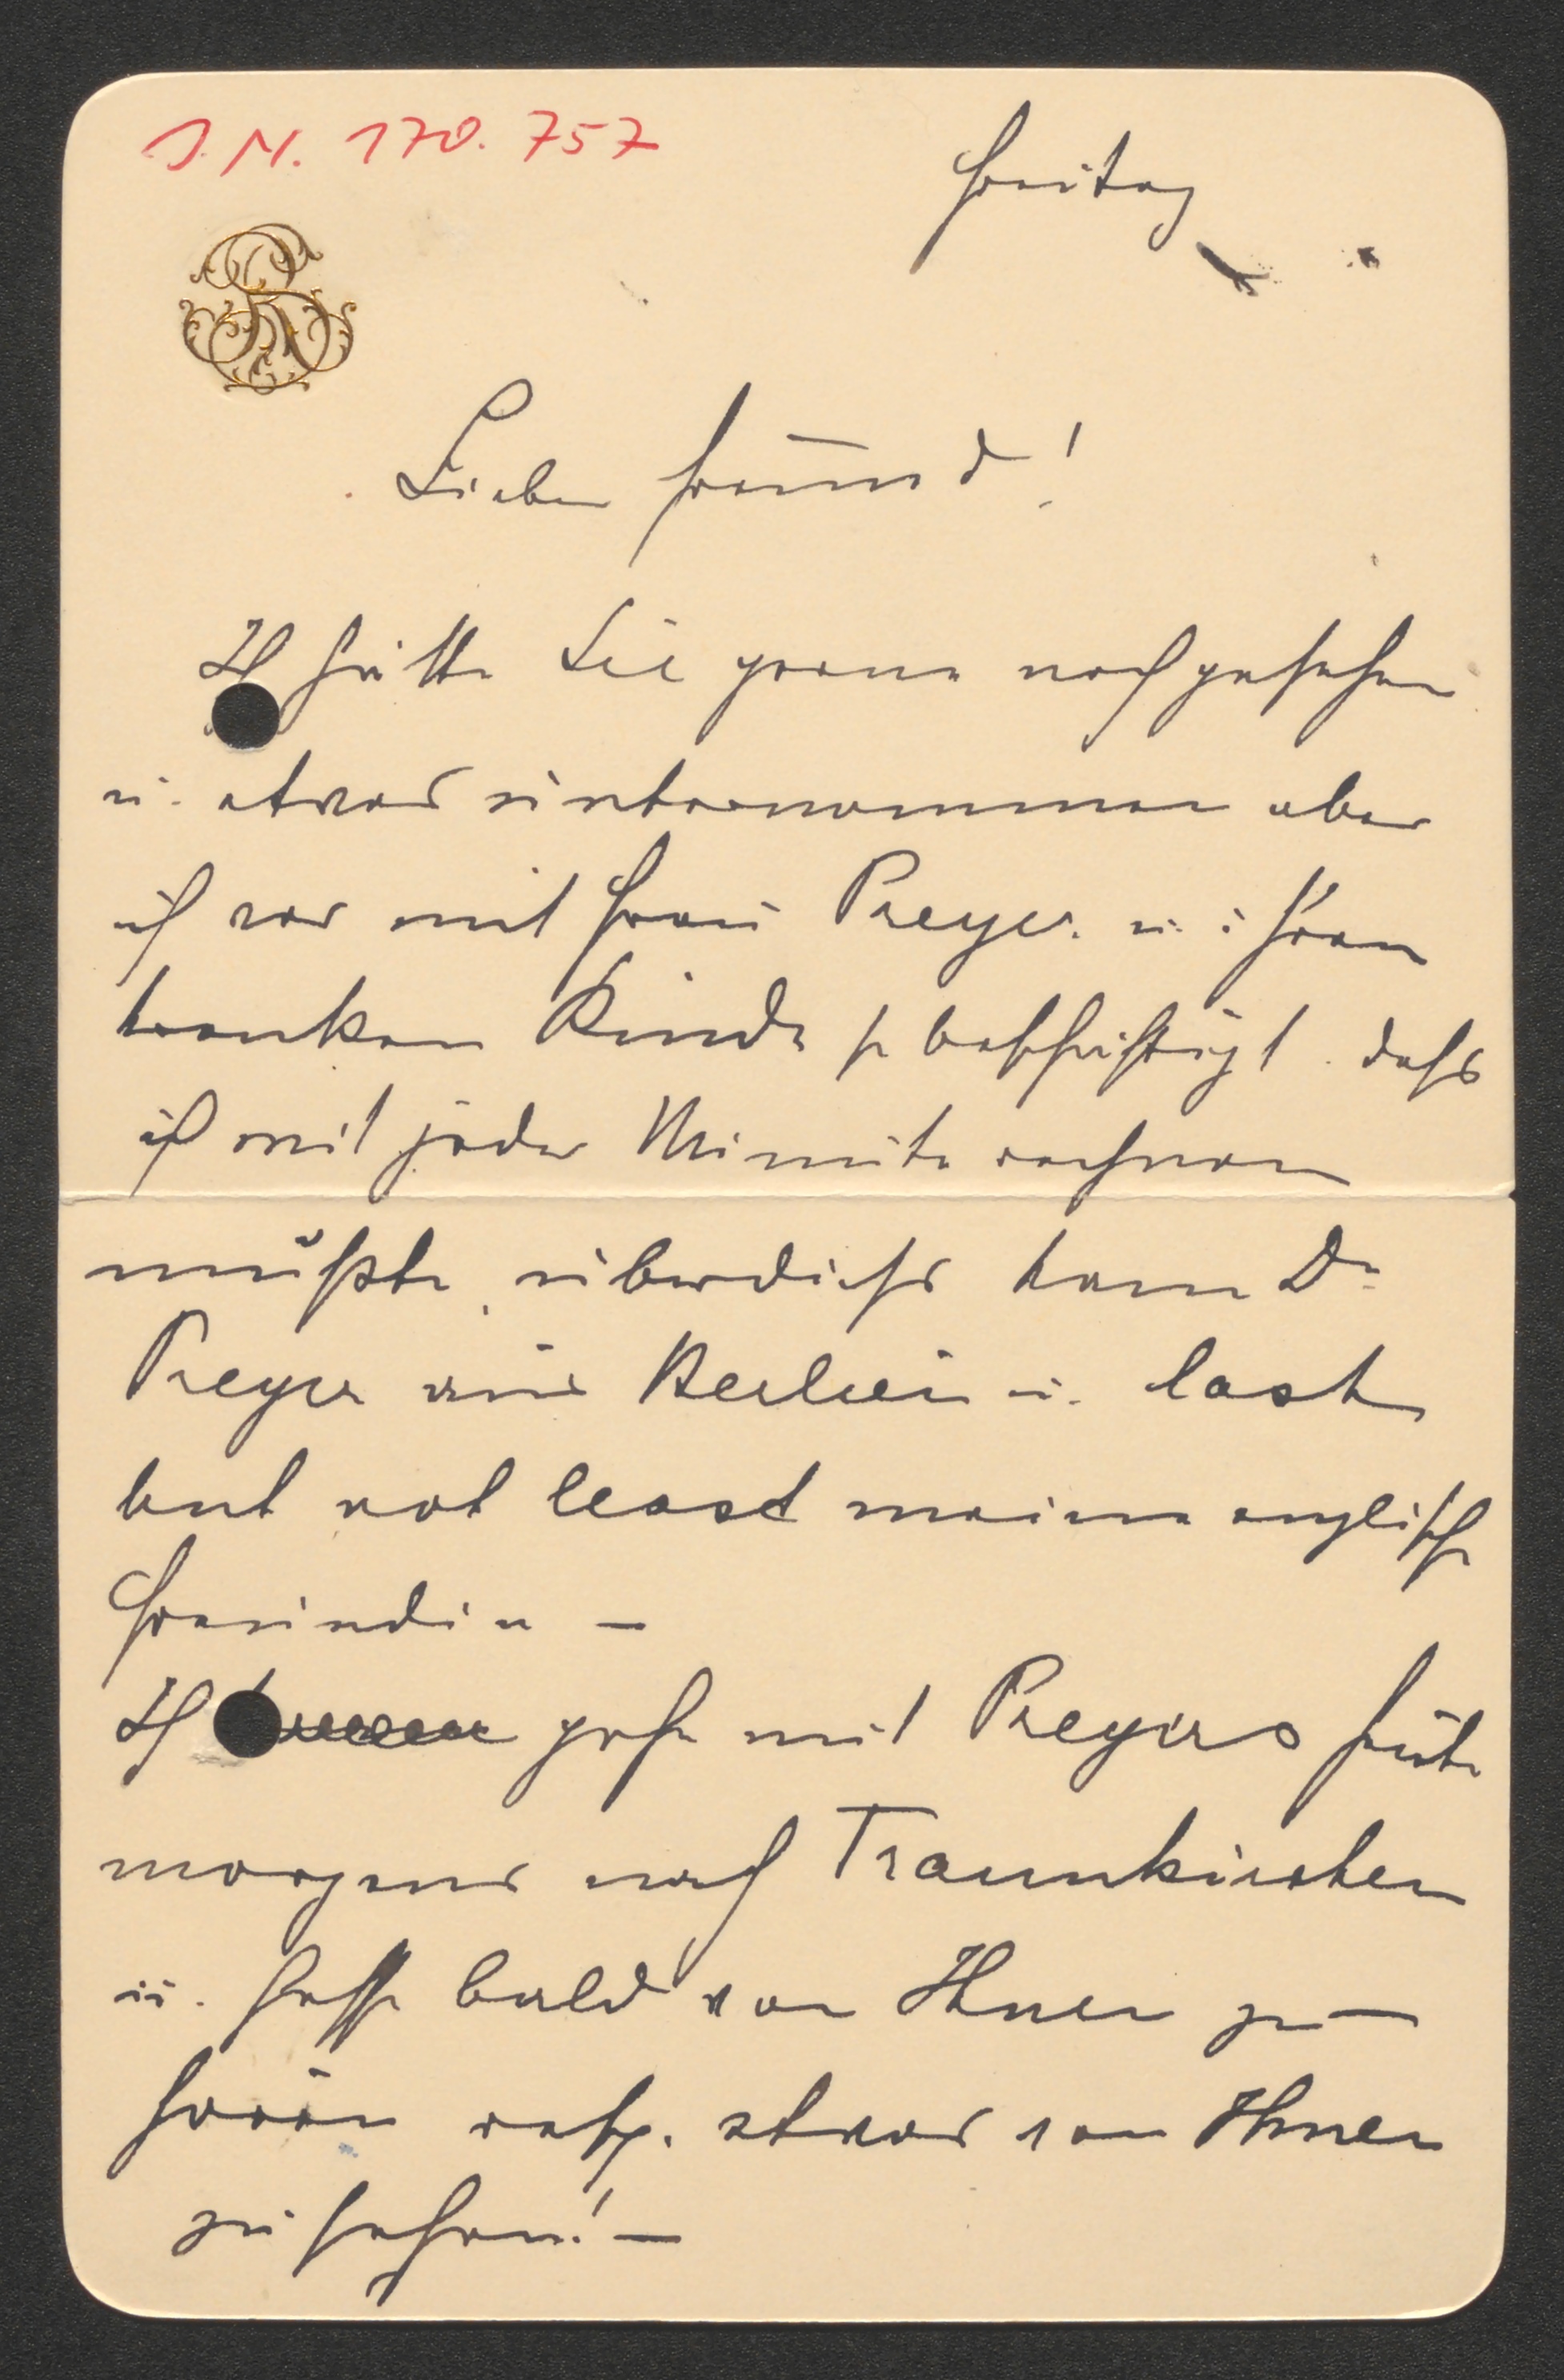 J.N. 170.757
Freitag
Lieber Freund!
Ich hätte Sie gerne noch gesehen
u. etwas unternommen aber
ich war mit Frau Preyer u. ihrem
kranken Kinde so beschäftigt dass
ich mit jeder Minute rechnen
mußte, überdiess kam Dr
Preyer aus Berlin u. last
but not least meine englische
Freundin –
Ich gehe mit Preyers heute
morgens nach Traunkirchen
u. hoffe bald von Ihnen zu –
hören resp. etwas von Ihnen
zu sehen! –